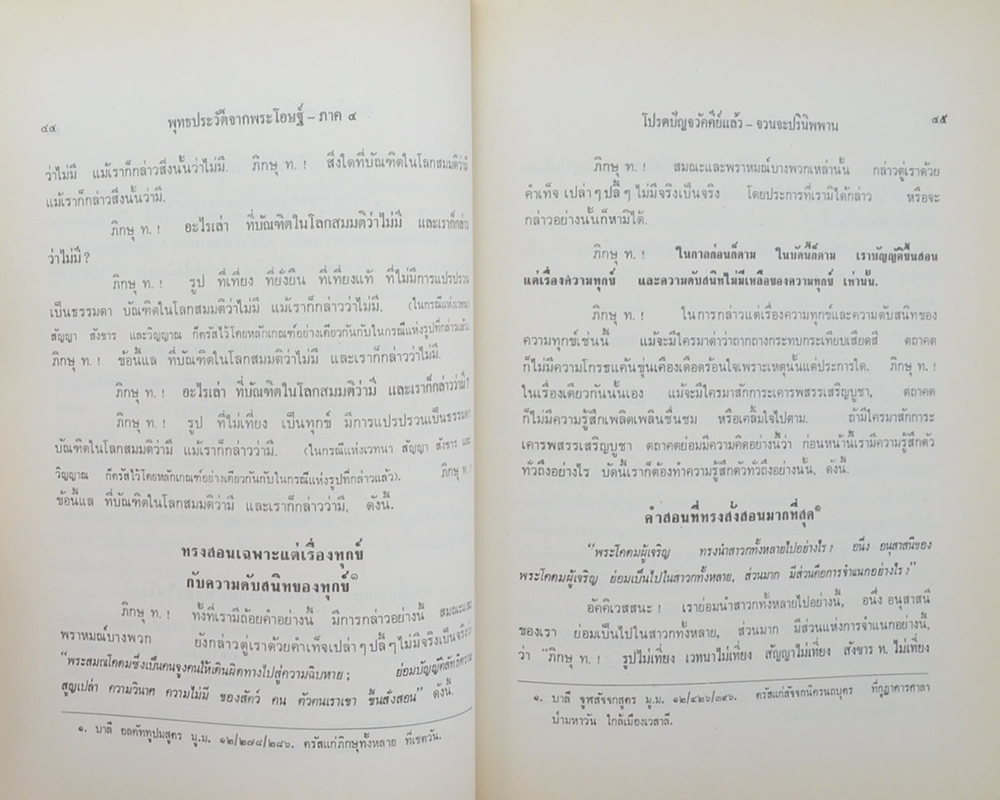 ๔๔
พุทธประวัติจากพระโอษฐ์ – ภาค ๔
ว่าไม่มี แม้เราก็กล่าวสิ่งนั้นว่าไม่มี. ภิกษุ ท. ! สิ่งใดที่บัณฑิตในโลกสมมติว่ามี
แม้เราก็กล่าวสิ่งนั้นว่ามี.
ภิกษุ ท. ! อะไรเล่า ที่บัณฑิตในโลกสมมติว่าไม่มี และเราก็กล่าว
ว่าไม่มี ?
ภิกษุ ท. ! รูป ที่เที่ยง ที่ยั่งยืน ที่เที่ยงแท้ ที่ไม่มีการแปรปรวน
เป็นธรรมดา บัณฑิตในโลกสมมติว่าไม่มี แม้เราก็กล่าวว่าไม่มี. (ในกรณีแห่งเวทนา
สัญญา สังขาร และวิญญาณ ก็ตรัสไว้โดยหลักเกณฑ์อย่างเดียวกันกับในกรณีแห่งรูปที่กล่าวแล้ว).
ภิกษุ ท. ! ข้อนี้แล ที่บัณฑิตในโลกสมมติว่าไม่มี และเราก็กล่าวว่าไม่มี.
ภิกษุ ท. ! อะไรเล่า ที่บัณฑิตในโลกสมมติว่ามี และเราก็กล่าวว่ามี ?
ภิกษุ ท. ! รูป ที่ไม่เที่ยง เป็นทุกข์ มีการแปรปรวนเป็นธรรมดา
บัณฑิตในโลกสมมติว่ามี แม้เราก็กล่าวว่ามี. (ในกรณีแห่งเวทนา สัญญา สังขาร และ
วิญญาณ ก็ตรัสไว้โดยหลักเกณฑ์อย่างเดียวกันกับในกรณีแห่งรูปที่กล่าวแล้ว). ภิกษุ ท. !
ข้อนี้แล ที่บัณฑิตในโลกสมมติว่ามี และเราก็กล่าวว่ามี, ดังนี้.
ทรงสอนเฉพาะแต่เรื่องทุกข์
กับความดับสนิทของทุกข์๑
ภิกษุ ท. ! ทั้งที่เรามีถ้อยคำอย่างนี้ มีการกล่าวอย่างนี้ สมณะและ
พราหมณ์บางพวก ยังกล่าวตู่เราด้วยคำเท็จเปล่า ๆ ปลี้ ๆ ไม่มีจริงเป็นจริงว่า
“พระสมณโคดมซึ่งเป็นคนจูงคนให้เดินผิดทางไปสู่ความฉิบหาย ; ย่อมบัญญัติลัทธิความ
สูญเปล่า ความวินาศ ความไม่มี ของสัตว์ คน ตัวตนเราเขา ขึ้นสั่งสอน” ดังนี้.
๑. บาลี อลคัททูปมสูตร มู.ม. ๑๒/๒๗๘/๒๘๖. ตรัสแก่ภิกษุทั้งหลาย ที่เชตวัน.
โปรดปัญจวัคคีย์แล้ว – จวนจะปรินิพพาน
๔๕
ภิกษุ ท. ! สมณะและพราหมณ์บางพวกเหล่านั้น กล่าวตู่เราด้วย
คำเท็จ เปล่า ๆ ปลี้ ๆ ไม่มีจริงเป็นจริง โดยประการที่เรามิได้กล่าว หรือจะ
กล่าวอย่างนั้นก็หามิได้.
ภิกษุ ท. ! ในกาลก่อนก็ตาม ในบัดนี้ก็ตาม เราบัญญัติขึ้นสอน
แต่เรื่องความทุกข์ และความดับสนิทไม่มีเหลือของความทุกข์ เท่านั้น.
ภิกษุ ท. ! ในการกล่าวแต่เรื่องความทุกข์และความดับสนิทของ
ความทุกข์เช่นนี้ แม้จะมีใครมาด่าว่าถากถางกระทบกระเทียบเสียดสี ตถาคต
ก็ไม่มีความโกรธแค้นขุ่นเคืองเดือดร้อนใจเพราะเหตุนั้นแต่ประการใด. ภิกษุ ท. !
ในเรื่องเดียวกันนั้นเอง แม้จะมีใครมาสักการะเคารพสรรเสริญบูชา, ตถาคต
ก็ไม่มีความรู้สึกเพลิดเพลินชื่นชม หรือเคลิ้มใจไปตาม. ถ้ามีใครมาสักการะ
เคารพสรรเสริญบูชา ตถาคตย่อมมีความคิดอย่างนี้ว่า ก่อนหน้านี้เรามีความรู้สึกตัว
ทั่วถึงอย่างไร บัดนี้เราก็ต้องทำความรู้สึกตัวทั่วถึงอย่างนั้น, ดังนี้.
คำสอนที่ทรงสั่งสอนมากที่สุด๑
“พระโคดมผู้เจริญ ทรงนำสาวกทั้งหลายไปอย่างไร ? อนึ่ง อนุสาสนีของ
พระโคดมผู้เจริญ ย่อมเป็นไปในสาวกทั้งหลาย, ส่วนมาก มีส่วนคือการจำแนกอย่างไร ?”
อัคคิเวสสนะ ! เราย่อมนำสาวกทั้งหลายไปอย่างนี้, อนึ่ง อนุสาสนี
ของเรา ย่อมเป็นไปในสาวกทั้งหลาย, ส่วนมาก มีส่วนแห่งการจำแนกอย่างนี้,
ว่า “ภิกษุ ท. ! รูปไม่เที่ยง เวทนาไม่เที่ยง สัญญาไม่เที่ยง สังขาร ท. ไม่เที่ยง
๑. บาลี จูฬสัจจกสูตร มู.ม. ๑๒/๔๒๖/๓๙๖. ตรัสแก่สัจจกนิครนถบุตร ที่กูฏาคารศาลา
ป่ามหาวัน ใกล้เมืองเวสาลี.